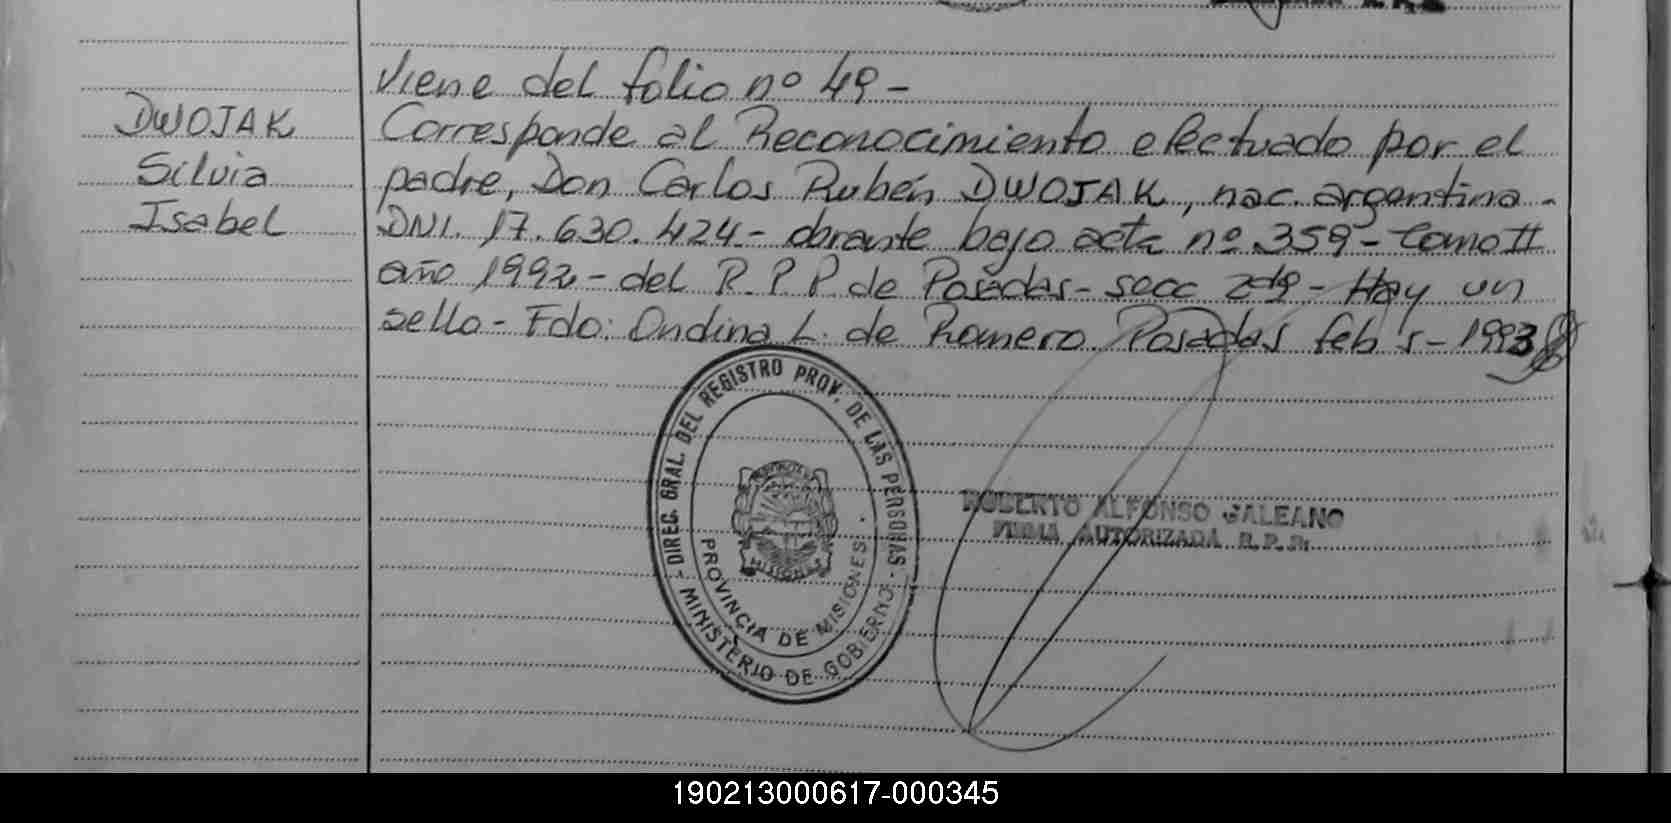 DWOJAK
Silvia
Isabel
Viene del folio nº 49 -
Corresponde al Reconocimiento efectuado por el
padre, Don Carlos Rubén DWOJAK, nac. argentina -
DNI. 17.630.424 - obrante bajo acta nº 359 - tomo II
año 1992 - del R.P.P. de Posadas - secc 2da - Hay un
sello - Fdo: Ondina L. de Romero Posadas feb 5 - 1993
- DIREC. GRAL. DEL REGISTRO PROV. DE LAS PERSONAS -
MINISTERIO DE GOBIERNO
PROVINCIA DE MISIONES
MISIONES
ROBERTO ALFONSO GALEANO
FIRMA AUTORIZADA R.P.P.
190213000617-000345